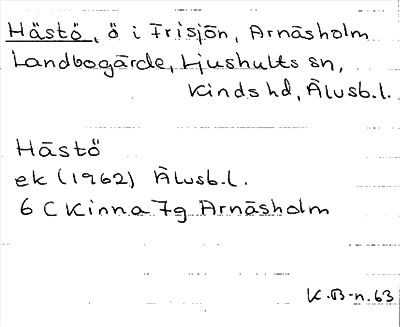 Hästö, ö i Frisjön, Arnäsholm
Landbogärde, Ljushults sn,
Kinds hd, Älvsb.l.
Hästö
ek (1962) Älvsb.l.
6 C Kinna 7g Arnäsholm
K.B-n.63